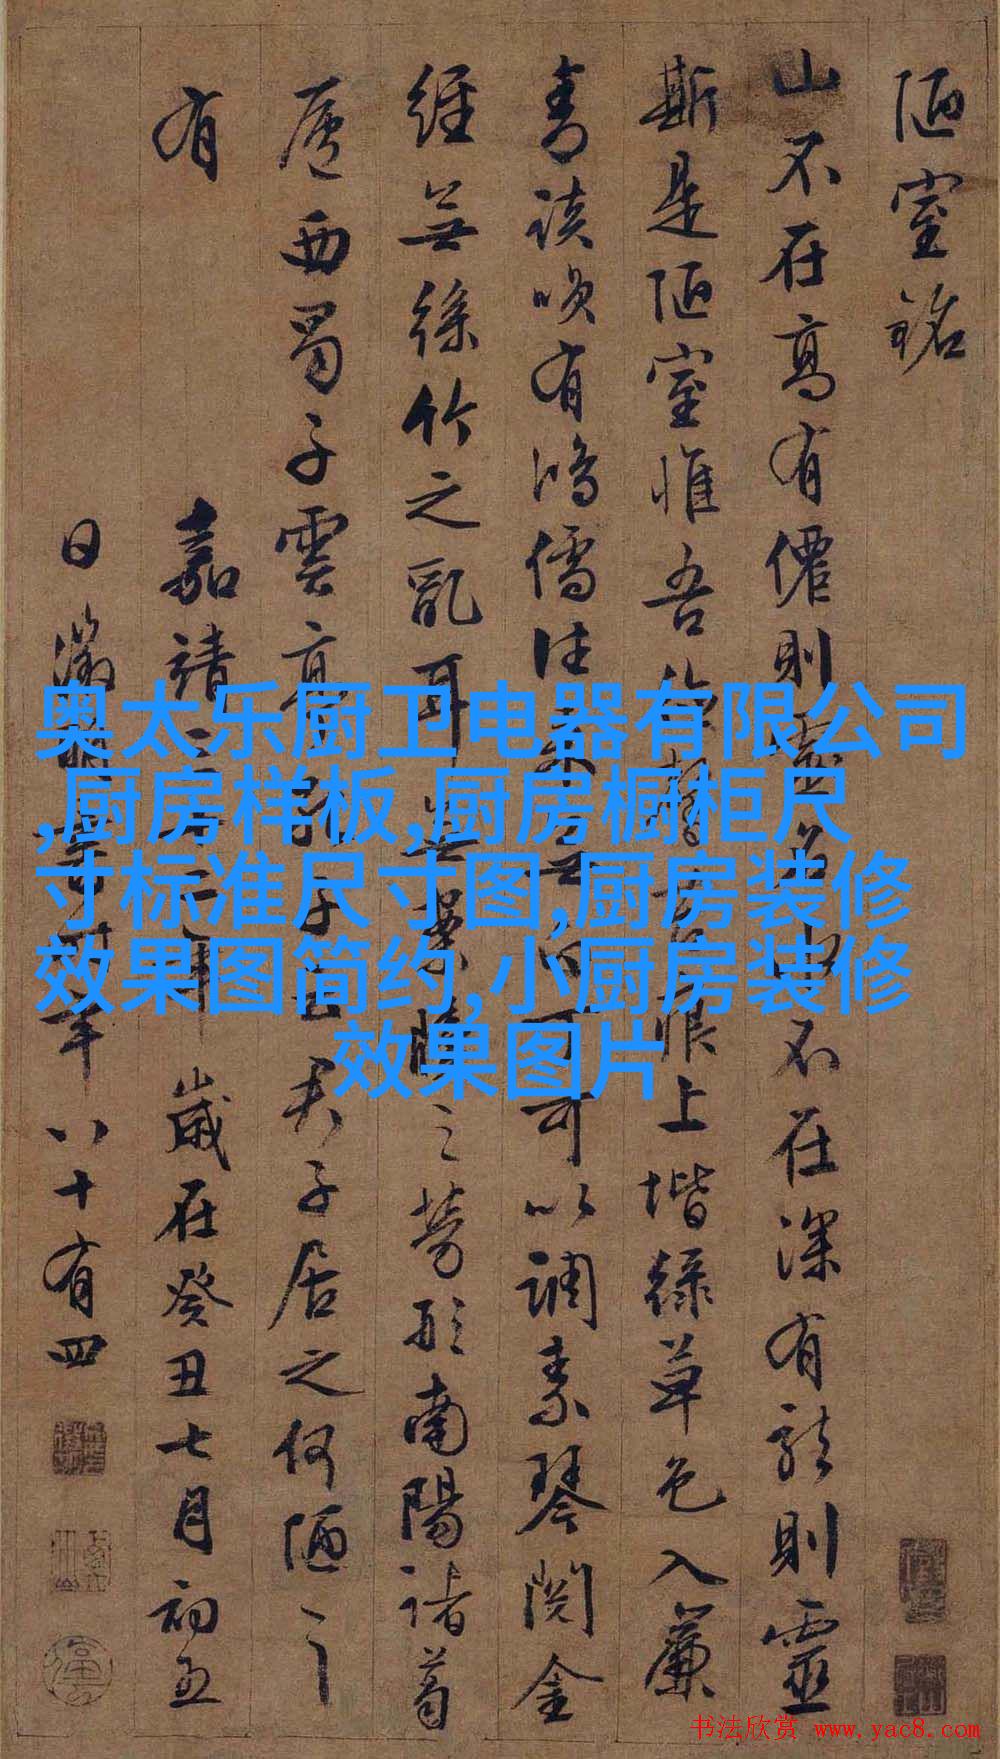 陋室銘
山不在高有僊則名水不在深有龍則靈
斯是陋室惟吾德馨苔痕上堦綠草色入簾
青談咲有鴻儒往來無白丁可以調素琴閱金
經無絲竹之亂耳無案牘之勞形南陽諸葛
廬西蜀子雲亭孔子云君子居之何陋之
有
嘉靖三十二年歲在癸丑七月初五
日徵明書時年八十有四
奥太乐厨卫电器有限公司
,厨房样板,厨房橱柜尺
寸标准尺寸图,厨房装修
效果图简约,小厨房装修
效果图片
书法欣赏 www.yac8.com